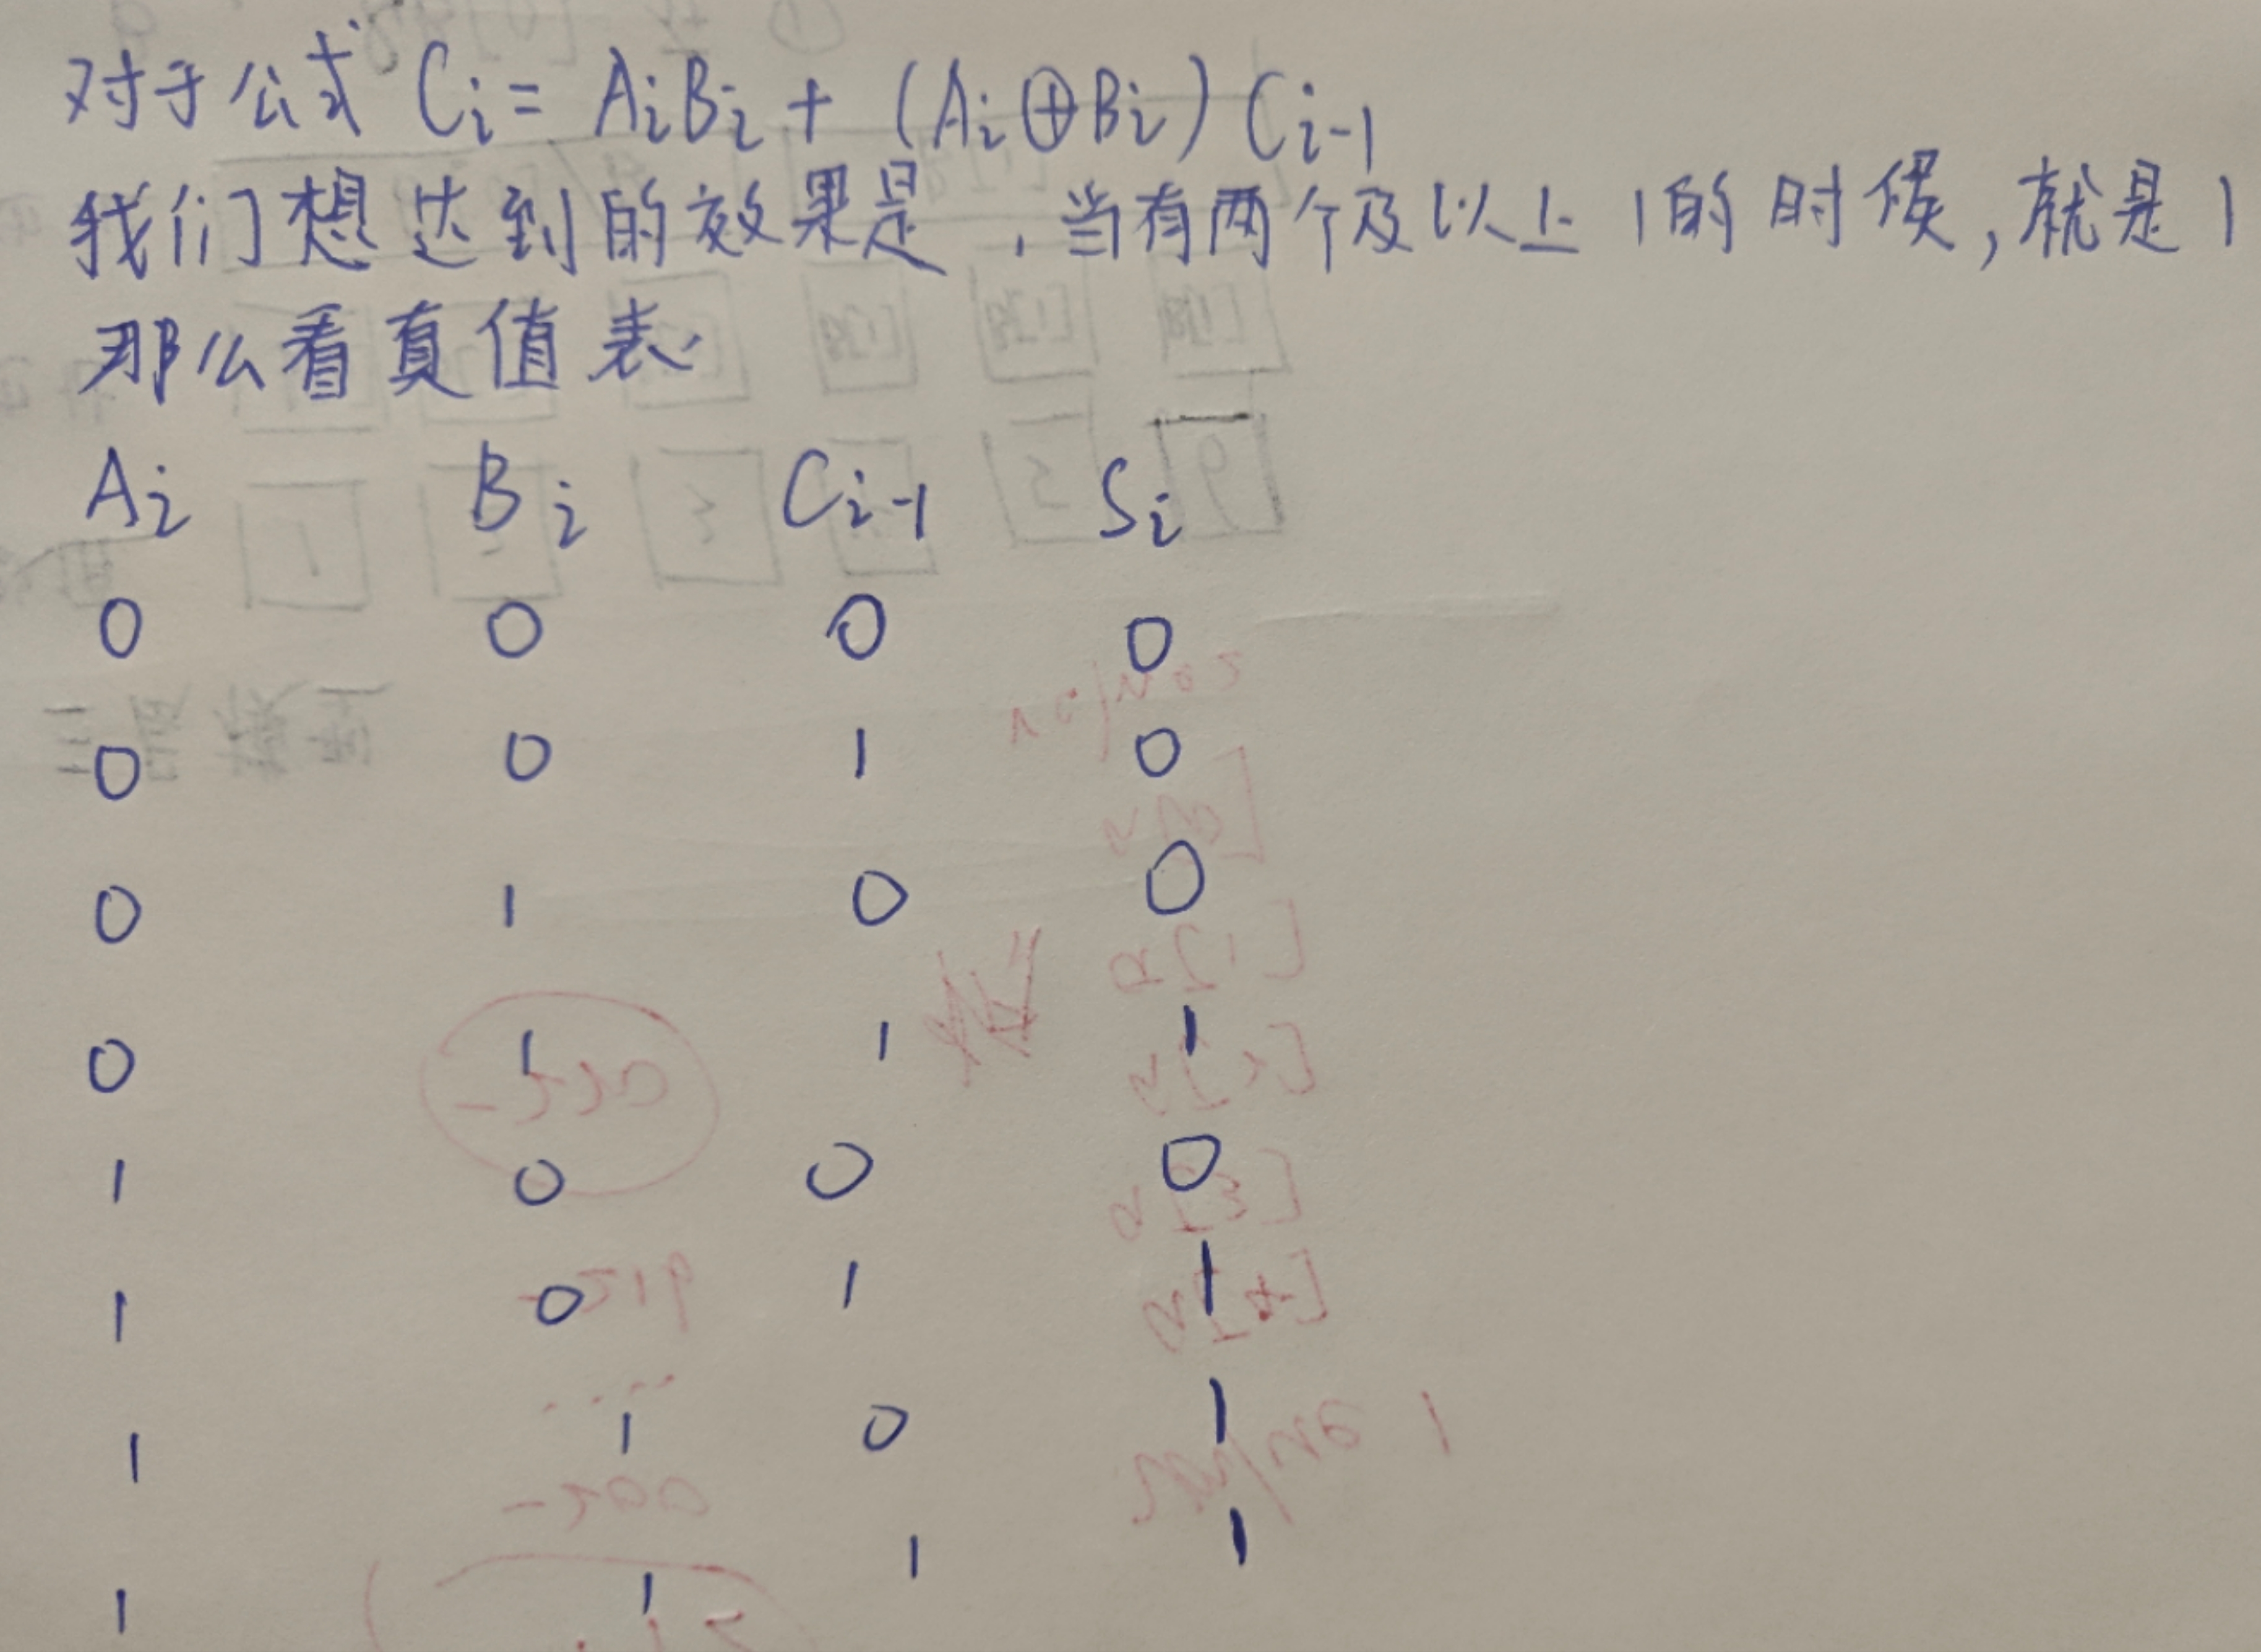 对于公式 Ci = AiBi + (Ai⊕Bi) Ci-1
我们想达到的效果是，当有两个及以上1的时候，就是1
那么看真值表.
Ai Bi Ci-1 Si
0 0 0 0
0 0 1 0
0 1 0 0
0 1 1 1
1 0 0 0
1 0 1 1
1 1 0 1
1 1 1 1